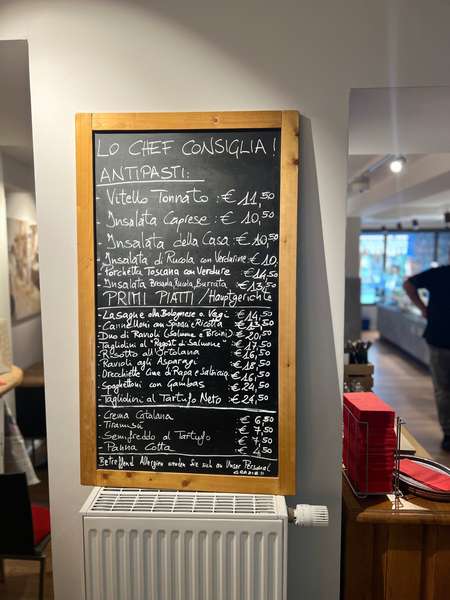 LO CHEF CONSIGLIA!
ANTIPASTI:
- Vitello Tonnato : € 11,50
- Insalata Caprese : € 10,50
- Insalata della Casa : € 10,50
- Insalata di Rucola con Verdurine € 10,
- Porchetta Toscana con Verdure € 14,50
- Insalata Bresaola, Rucola, Burrata € 13,50
PRIMI PIATTI / Hauptgerichte
- Lasagne alla Bolognese o Vegi € 14,50
- Cannelloni con Spinaci e Ricotta € 13,50
- Duo di Ravioli (Salmone e Porcini) € 20,50
- Tagliolini al "Ragout di Salmone" € 17,50
- Risotto all'Ortolana € 16,50
- Ravioli agli Asparagi € 18,50
- Orecchiette Cime di Rapa e Salsiccia € 16,50
- Spaghettoni con Gambas € 24,50
- Tagliolini al Tartufo Nero € 24,50
- Crema Catalana € 6,50
- Tiramisù € 7,50
- Semifreddo al Tartufo € 7,50
- Panna Cotta € 4,50
Betreffend Allergien wenden Sie sich an Unser Personal
GRAZIE!!